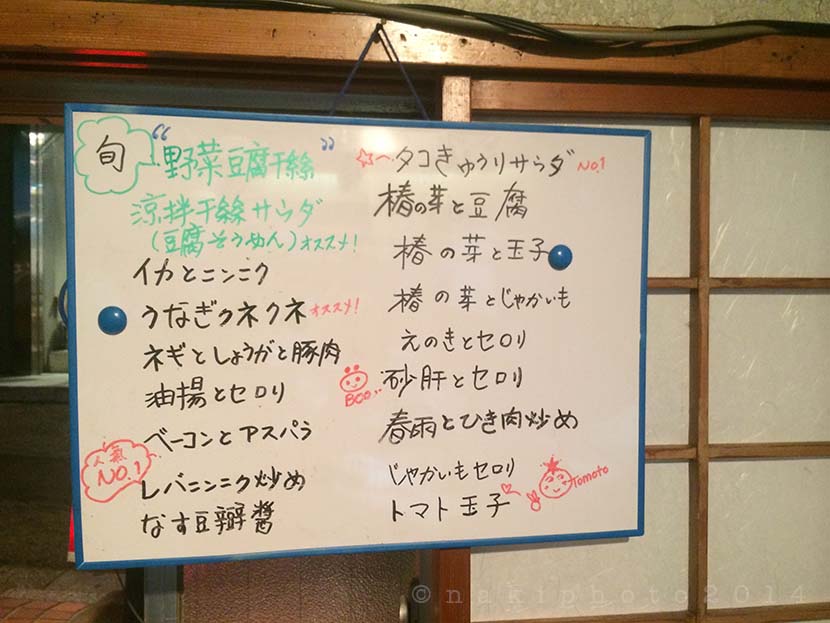 旬 "野菜豆腐干絲"
涼拌干絲サラダ
(豆腐そうめん)オススメ!
イカとニンニク
うなぎクネクネ オススメ!
ネギとしょうがと豚肉
油揚とセロリ
ベーコンとアスパラ
人氣 NO.1
レバニンニク炒め
なす豆瓣醬
☆〜タコきゅうりサラダ NO.1
椿の芽と豆腐
椿の芽と玉子
椿の芽とじゃかいも
えのきとセロリ
砂肝とセロリ
BOO
春雨とひき肉炒め
じゃかいもセロリ
トマト玉子♡
Tomoto
©nakiphoto2014